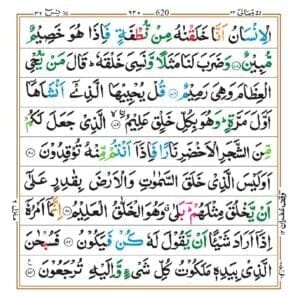 ٦٢٠
الۡاِنۡسَانُ اَنَّا خَلَقۡنٰهُ مِنۡ نُّطۡفَةٍ فَاِذَا هُوَ خَصِيۡمٌ
مُّبِيۡنٌ ﴿۷۷﴾ وَضَرَبَ لَنَا مَثَلًا وَّنَسِىَ خَلۡقَهٗ ؕ قَالَ مَنۡ يُّحۡىِ
الۡعِظَامَ وَهِىَ رَمِيۡمٌ ﴿۷۸﴾ قُلۡ يُحۡيِيۡهَا الَّذِىۡۤ اَنۡشَاَهَاۤ
اَوَّلَ مَرَّةٍ ؕ وَهُوَ بِكُلِّ خَلۡقٍ عَلِيۡمُ ۙ ﴿۷۹﴾ الَّذِىۡ جَعَلَ لَكُمۡ
مِّنَ الشَّجَرِ الۡاَخۡضَرِ نَارًا فَاِذَاۤ اَنۡتُمۡ مِّنۡهُ تُوۡقِدُوۡنَ ﴿۸۰﴾
اَوَلَيۡسَ الَّذِىۡ خَلَقَ السَّمٰوٰتِ وَالۡاَرۡضَ بِقٰدِرٍ عَلٰٓى
اَنۡ يَّخۡلُقَ مِثۡلَهُمۡ ؕ بَلٰى وَهُوَ الۡخَلّٰقُ الۡعَلِيۡمُ ﴿۸۱﴾ اِنَّمَاۤ اَمۡرُهٗۤ
اِذَاۤ اَرَادَ شَيۡـًٔا اَنۡ يَّقُوۡلَ لَهٗ كُنۡ فَيَكُوۡنُ ﴿۸۲﴾ فَسُبۡحٰنَ
الَّذِىۡ بِيَدِهٖ مَلَكُوۡتُ كُلِّ شَىۡءٍ وَّاِلَيۡهِ تُرۡجَعُوۡنَ ﴿۸۳﴾